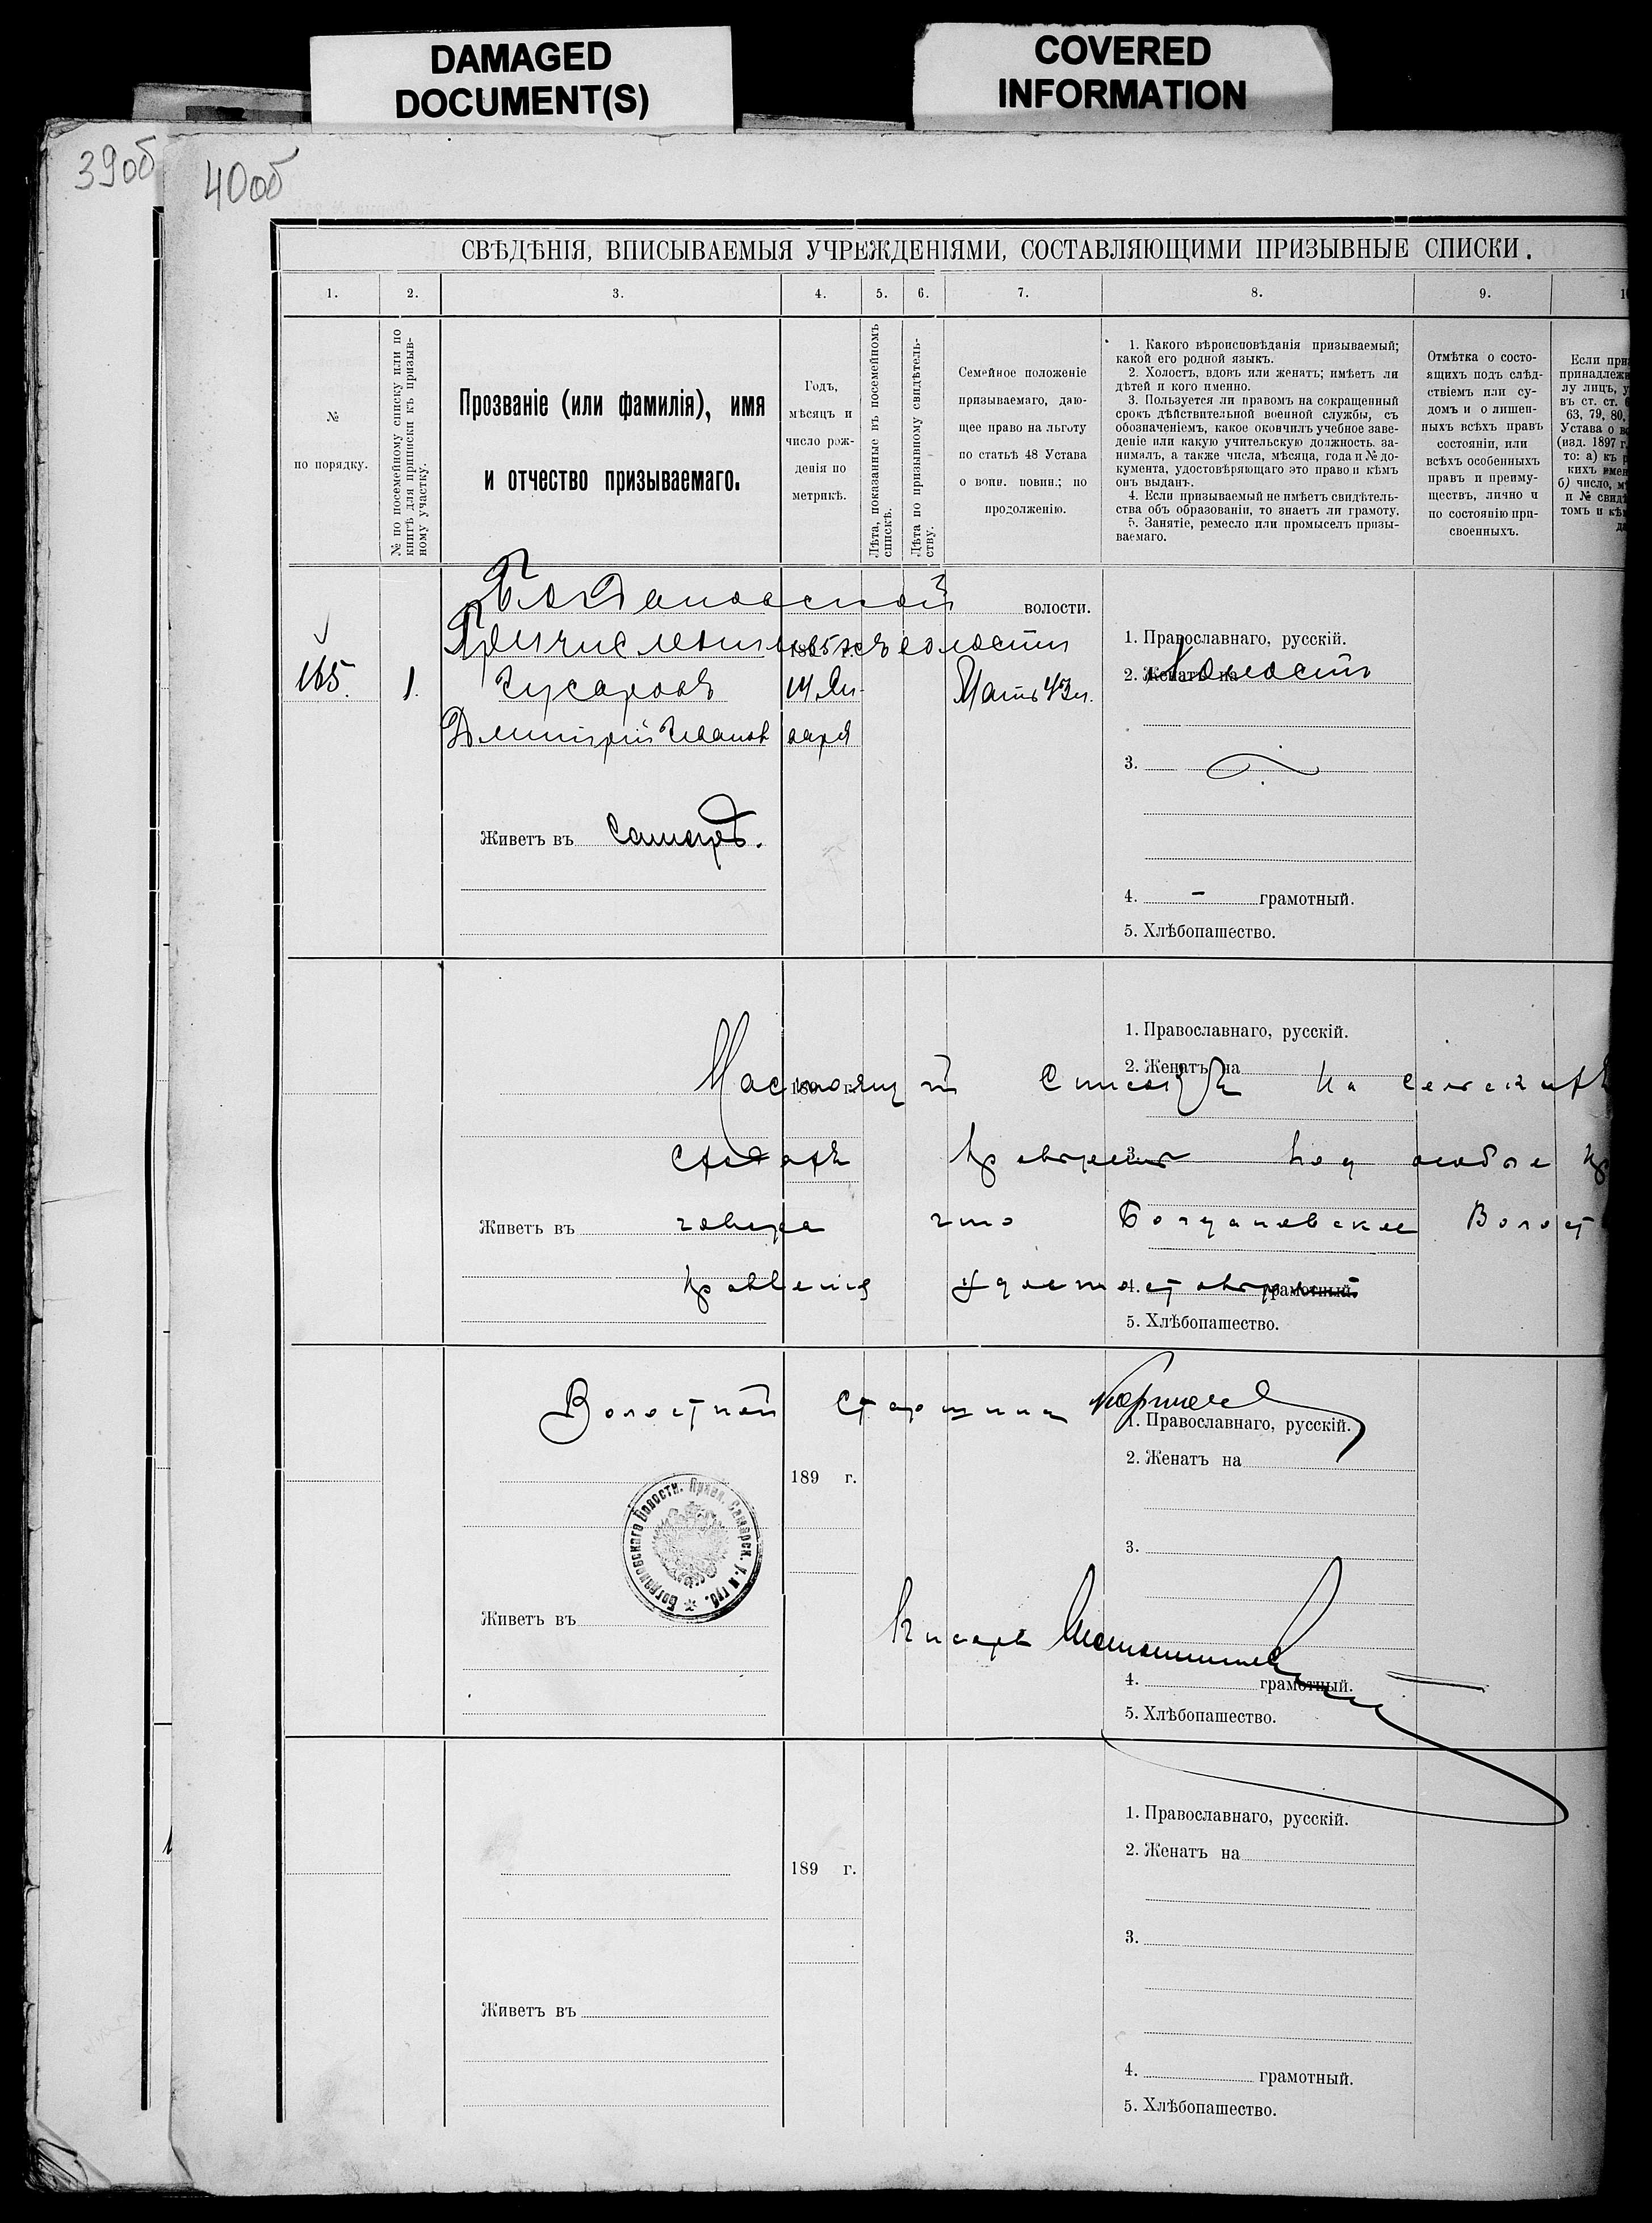 DAMAGED
DOCUMENT(S)
COVERED
INFORMATION
39об
40об
СВѢДѢНІЯ, ВПИСЫВАЕМЫЯ УЧРЕЖДЕНІЯМИ, СОСТАВЛЯЮЩИМИ ПРИЗЫВНЫЕ СПИСКИ.
1. 2. 3. 4. 5. 6. 7. 8. 9.
№
по порядку.
№ по посемейному списку или по
книгѣ для приписки къ призыв-
ному участку.
Прозваніе (или фамилія), имя
и отчество призываемаго.
Годъ,
мѣсяцъ и
число рож-
денія по
метрикѣ.
Лѣта, показанные въ посемейномъ
спискѣ.
Лѣта по призывному свидѣтель-
ству.
Семейное положеніе
призываемаго, даю-
щее право на льготу
по статьѣ 48 Устава
о воин. повин.; по
продолженію.
1. Какого вѣроисповѣданія призываемый;
какой его родной языкъ.
2. Холостъ, вдовъ или женатъ; имѣетъ ли
дѣтей и кого именно.
3. Пользуется ли правомъ на сокращенный
срокъ дѣйствительной военной службы, съ
обозначеніемъ, какое окончилъ учебное заве-
деніе или какую учительскую должность за-
нималъ, а также числа, мѣсяца, года и № до-
кумента, удостовѣряющаго это право и кѣмъ
онъ выданъ.
4. Если призываемый не имѣетъ свидѣтель-
ства объ образованіи, то знаетъ ли грамоту.
5. Занятіе, ремесло или промыселъ призы-
ваемаго.
Отмѣтка о состо-
ящихъ подъ слѣд-
ствіемъ или су-
домъ и о лишен-
ныхъ всѣхъ правъ
состоянія, или
всѣхъ особенныхъ
правъ и преиму-
ществъ, лично и
по состоянію при-
своенныхъ.
Если при
принадлеж
лу лицъ, у
въ ст. ст. 6
63, 79, 80,
Устава о в
(изд. 1897 г.
то: а) къ
кихъ имен
б) число, м
и № свид
томъ и кѣ
Богдановской волости.
волости
165. 1. Гусаровъ 14 Ян- Мать 43 л.
Дмитрій Иванов варя
1. Православнаго, русскій.
2. Женатъ на Холостъ
3.
Живетъ въ Самарѣ.
4. - грамотный.
5. Хлѣбопашество.
1. Православнаго, русскій.
2. Женатъ на
Настоящій Списокъ на сельскихъ
сходахъ
3.
Живетъ въ
что Богдановское Волост
4. грамотный.
5. Хлѣбопашество.
Волостной Старшина
1. Православнаго, русскій.
2. Женатъ на
189 г.
Богдановскаго Волости. Правл. Самарск. у. и губ.
3.
Живетъ въ
Писарь
4. грамотный.
5. Хлѣбопашество.
1. Православнаго, русскій.
2. Женатъ на
189 г.
3.
Живетъ въ
4. грамотный.
5. Хлѣбопашество.